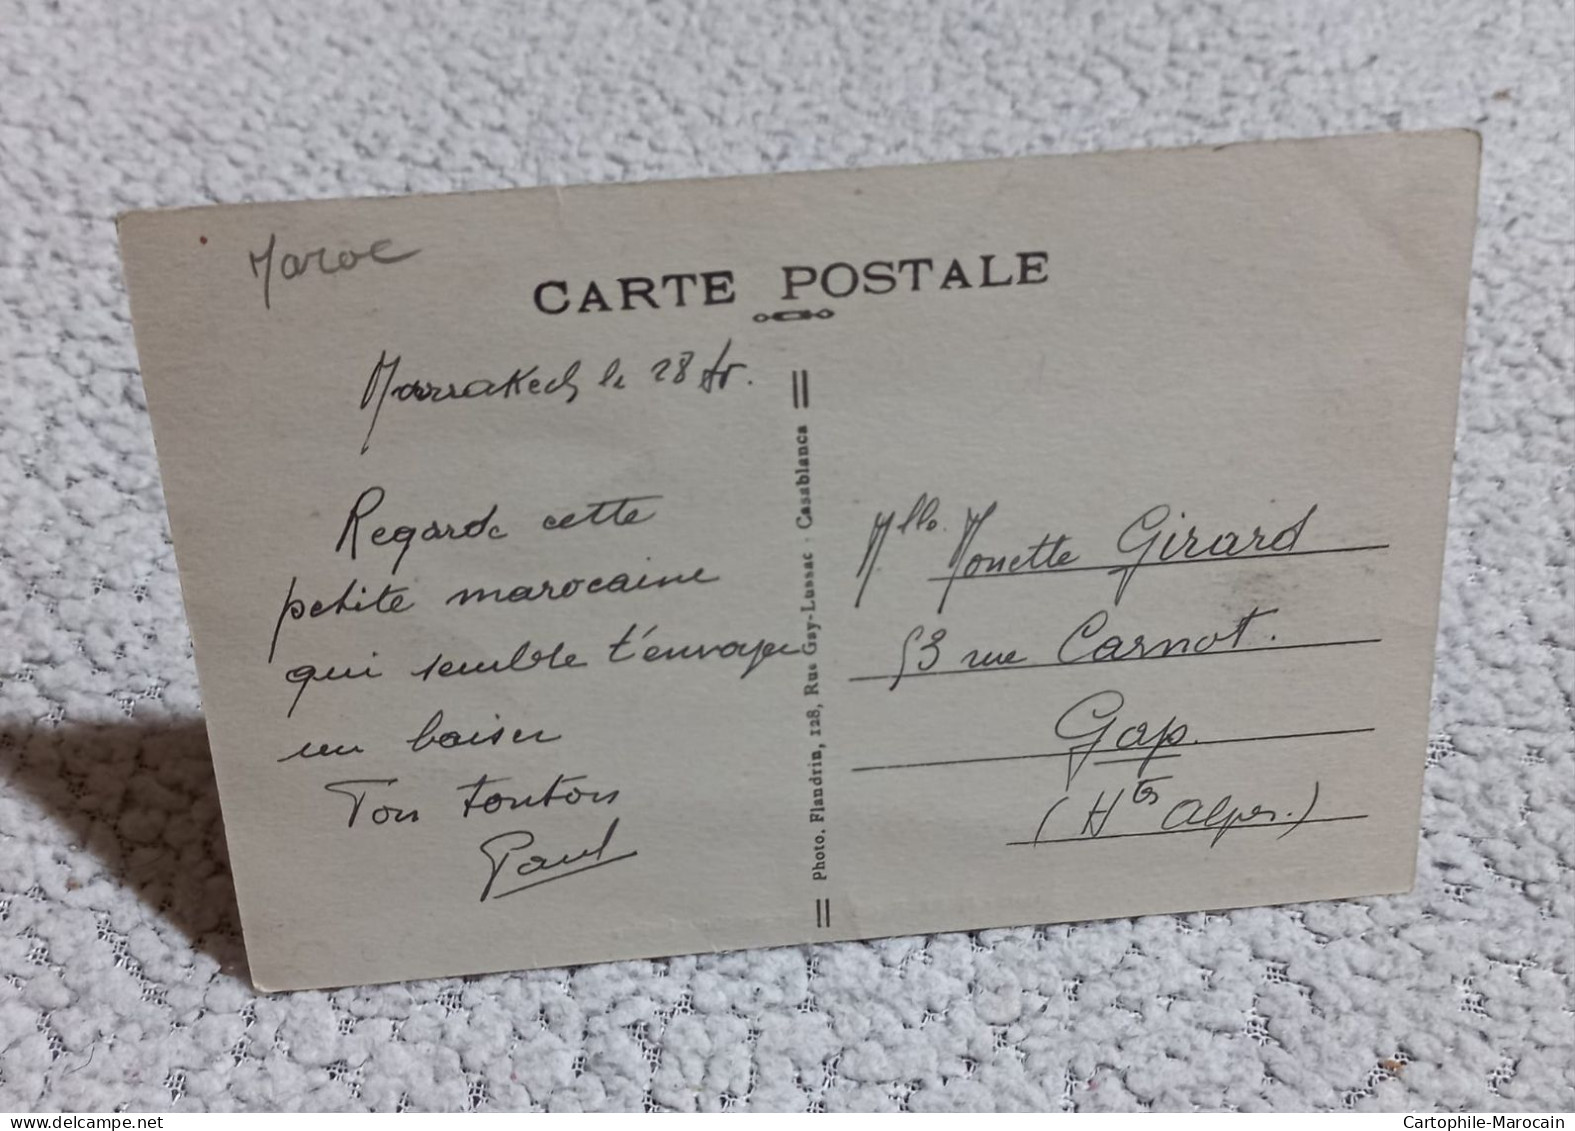 Maroc
CARTE POSTALE
Marrakech le 28
Regarde cette
petite marocaine
qui semble t'envoyer
un baiser
Ton tonton
Paul
Photo. Flandrin, 128, Rue Gay-Lussac - Casablanca
Mlle. Monette Girard
53 rue Carnot.
Gap.
(Htes Alpes.)
Cartophile-Marocain